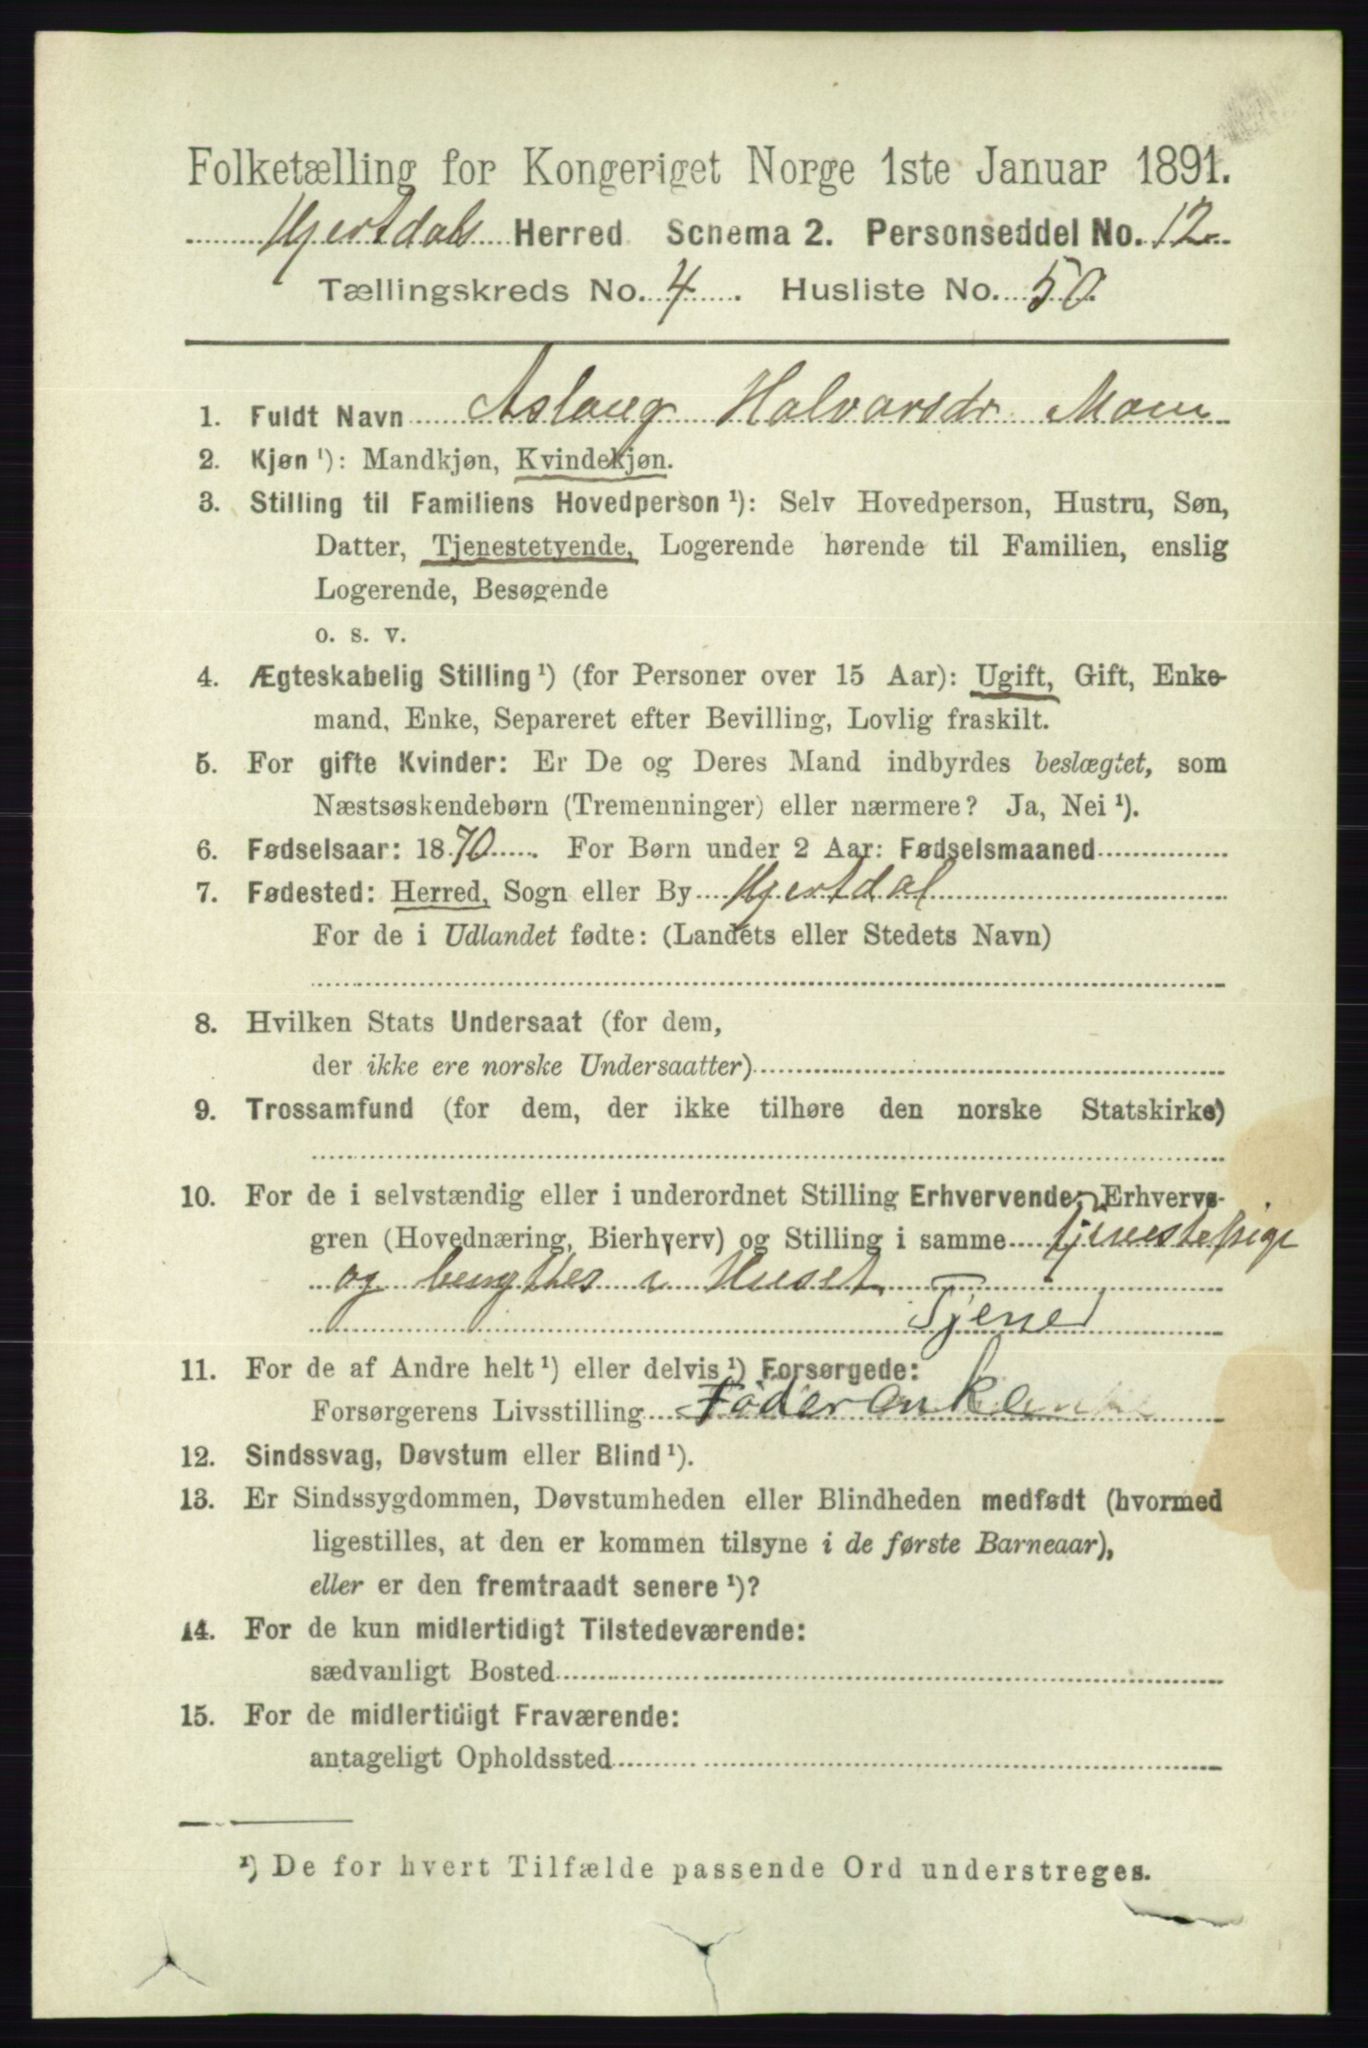 Folketælling for Kongeriget Norge 1ste Januar 1891.
Hjertdals Herred Schema 2. Personseddel No. 12
Tællingskreds No. 4. Husliste No. 50.
1. Fuldt Navn Aslaug Halvorsdr Moen
2. Kjøn ¹): Mandkjøn, Kvindekjøn.
3. Stilling til Familiens Hovedperson ¹): Selv Hovedperson, Hustru, Søn,
Datter, Tjenestetyende, Logerende hørende til Familien, enslig
Logerende, Besøgende
o. s. v.
4. Ægteskabelig Stilling ¹) (for Personer over 15 Aar): Ugift, Gift, Enke-
mand, Enke, Separeret efter Bevilling, Lovlig fraskilt.
5. For gifte Kvinder: Er De og Deres Mand indbyrdes beslægtet, som
Næstsøskendebørn (Tremenninger) eller nærmere? Ja, Nei ¹).
6. Fødselsaar: 1870. For Børn under 2 Aar: Fødselsmaaned
7. Fødested: Herred, Sogn eller By Hjertdal
For de i Udlandet fødte: (Landets eller Stedets Navn)
8. Hvilken Stats Undersaat (for dem,
der ikke ere norske Undersaatter)
9. Trossamfund (for dem, der ikke tilhøre den norske Statskirke)
10. For de i selvstændig eller i underordnet Stilling Erhvervende: Erhvervs-
gren (Hovednæring, Bierhverv) og Stilling i samme tjenestepige
og benyttes i Huset
Tjener
11. For de af Andre helt ¹) eller delvis ¹) Forsørgede:
Forsørgerens Livsstilling Føderenke
12. Sindssvag, Døvstum eller Blind ¹).
13. Er Sindssygdommen, Døvstumheden eller Blindheden medfødt (hvormed
ligestilles, at den er kommen tilsyne i de første Barneaar),
eller er den fremtraadt senere ¹)?
14. For de kun midlertidigt Tilstedeværende:
sædvanligt Bosted
15. For de midlertidigt Fraværende:
antageligt Opholdssted
¹) De for hvert Tilfælde passende Ord understreges.